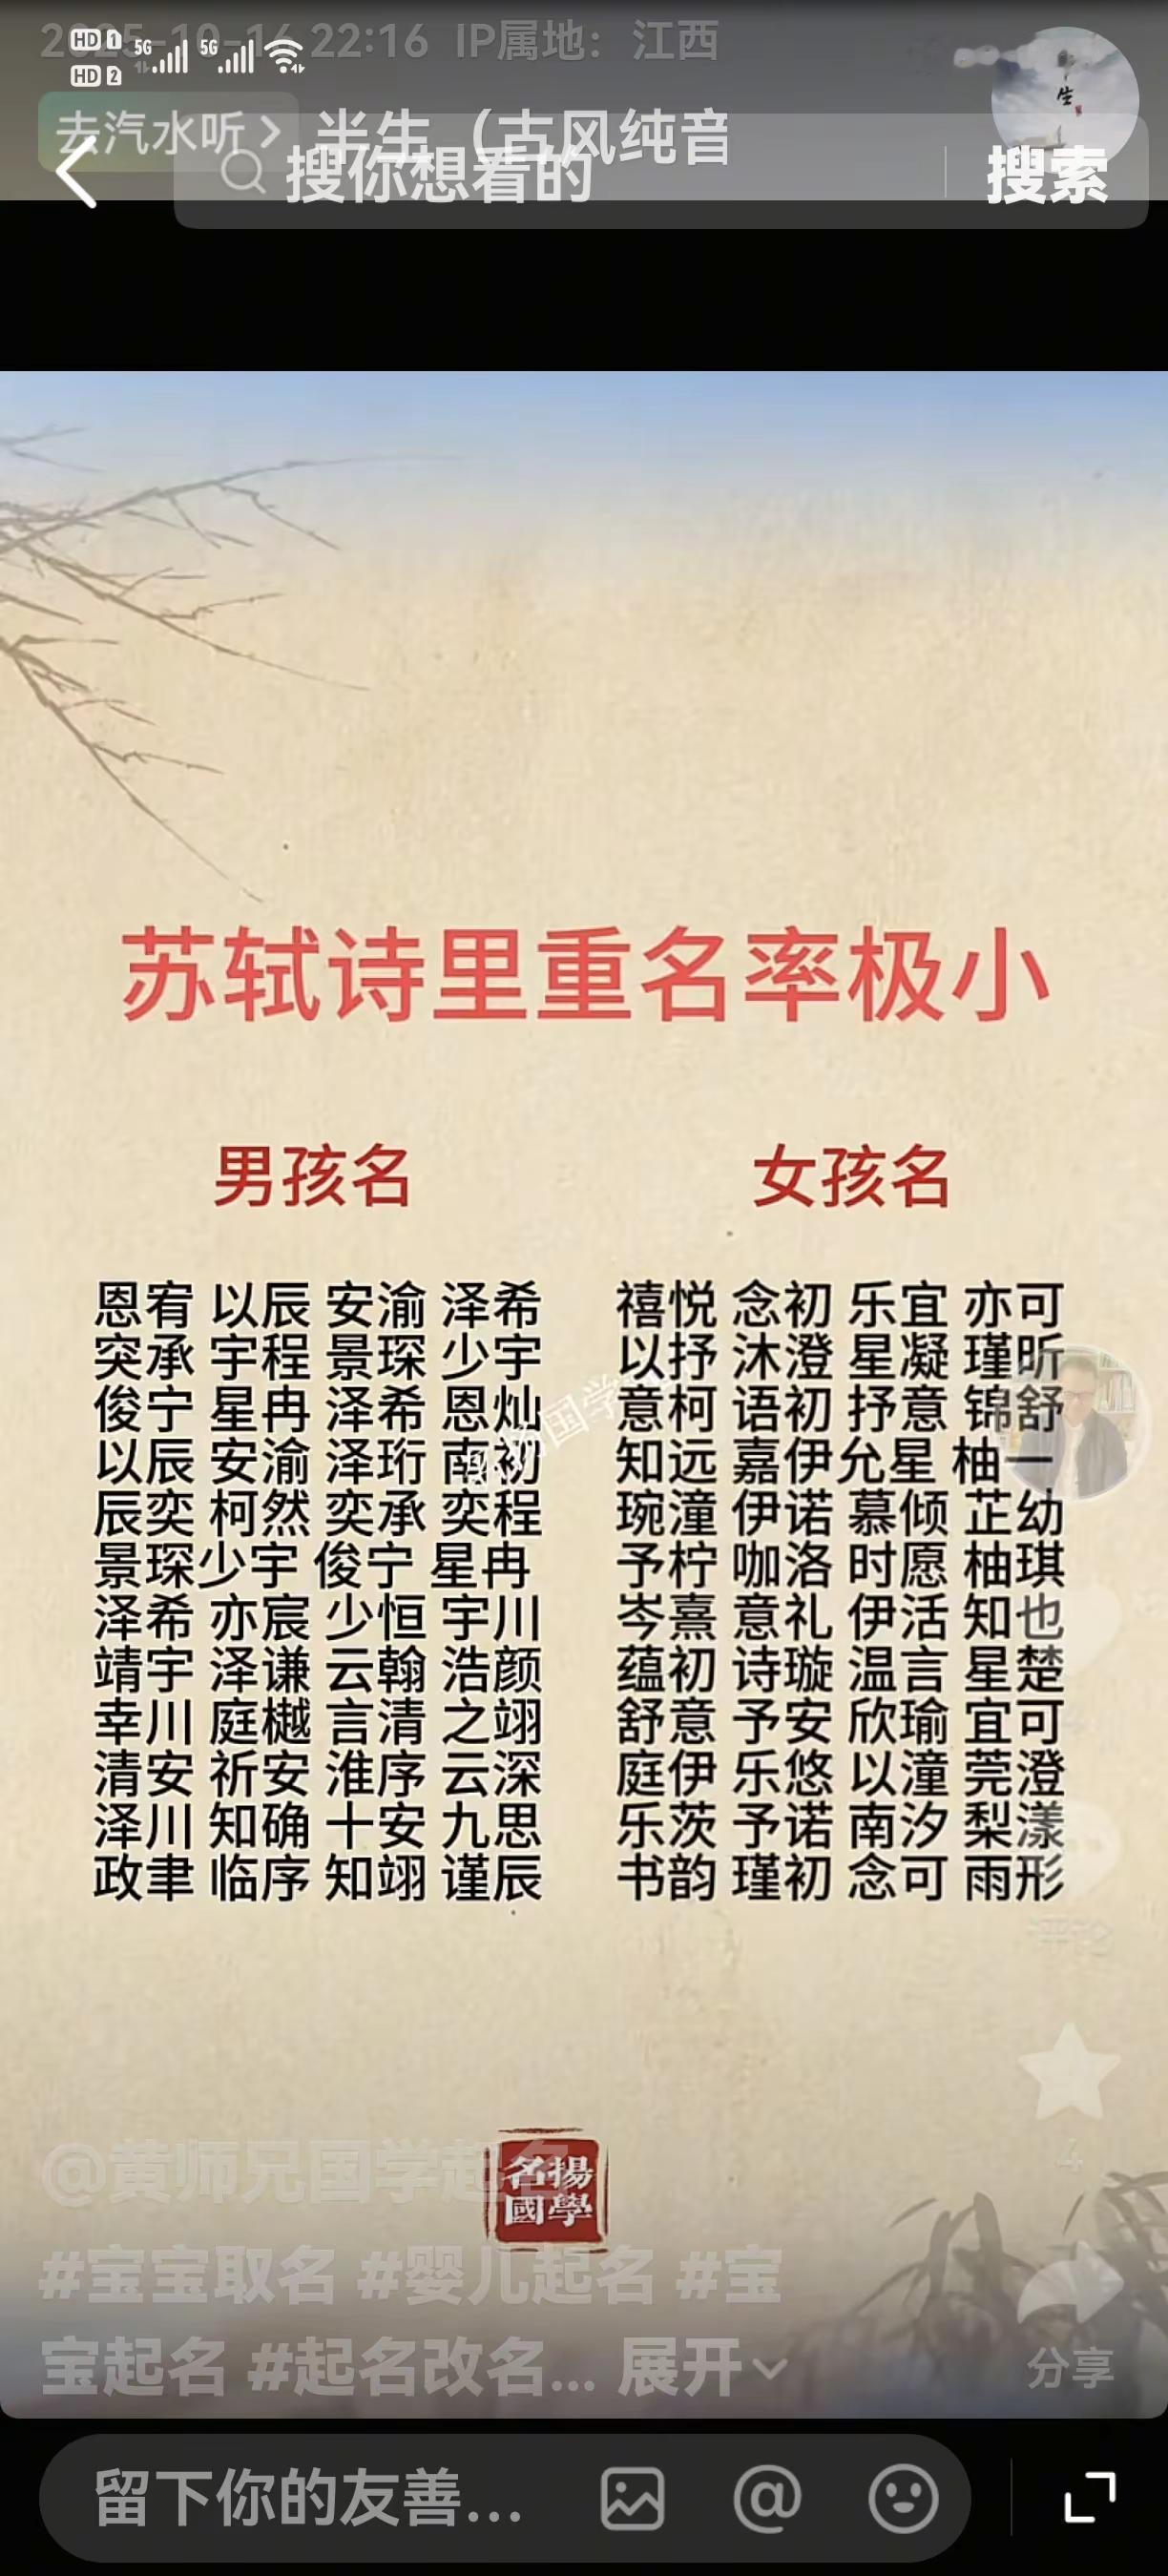 2025-10-16 22:16 IP属地：江西
HD 1 5G 5G
HD 2
去汽水听 > 半生（古风纯音
搜你想看的 搜索
苏轼诗里重名率极小
男孩名 女孩名
恩宥 以辰 安渝 泽希 禧悦 念初 乐宜 亦可
突承 宇程 景琛 少宇 以抒 沐澄 星凝 瑾昕
俊宁 星冉 泽希 恩灿 意柯 语初 抒意 锦舒
以辰 安渝 泽珩 南初 知远 嘉伊允星 柚一
辰奕 柯然 奕承 奕程 琬潼 伊诺 慕倾 芷幼
景琛少宇 俊宁 星冉 予柠 咖洛 时愿 柚琪
泽希 亦宸 少恒 宇川 岑熹 意礼 伊活 知也
靖宇 泽谦 云翰 浩颜 蕴初 诗璇 温言 星楚
幸川 庭樾 言清 之翊 舒意 予安 欣瑜 宜可
清安 祈安 淮序 云深 庭伊 乐悠 以潼 莞澄
泽川 知确 十安 九思 乐茨 予诺 南汐 梨漾
政聿 临序 知翊 谨辰 书韵 瑾初 念可 雨形
@黄师兄国学起名
名揚
國學
4
#宝宝取名 #婴儿起名 #宝
宝起名 #起名改名... 展开
分享
留下你的友善... @